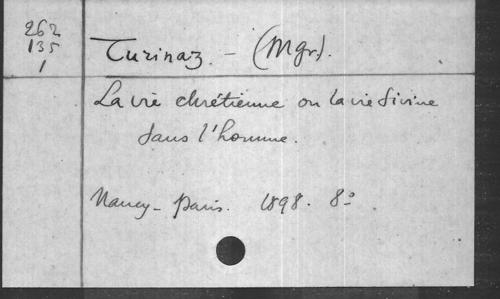 262
135
1
Turinaz. - (Mgr).
La vie chrétienne ou la vie divine
dans l'homme.
Nancy - Paris. 1898. 8°.